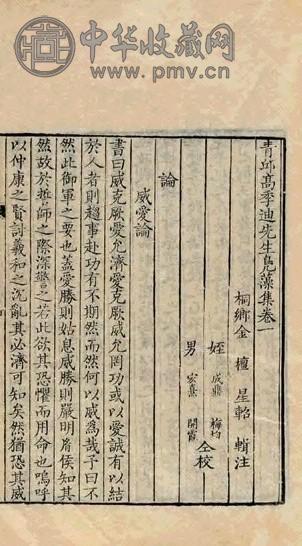 中华收藏网
www.pmv.cn
青邱高季迪先生鳧藻集卷一
桐鄉金 檀 星軺 輯注
姪 成鼎 梅均
男 宏熹 開霄 仝校
論
威愛論
書曰威克厥愛允濟愛克厥威允罔功或以愛誠有以結
於人者則趨事赴功有不期然而然何以威爲哉予曰不
然此御軍之要也蓋愛勝則姑息威勝則嚴明胤侯知其
然故於誓師之際深警之若此欲其恐懼而用命也嗚呼
以仲康之賢詞羲和之沉亂其必濟可知矣然猶恐其威